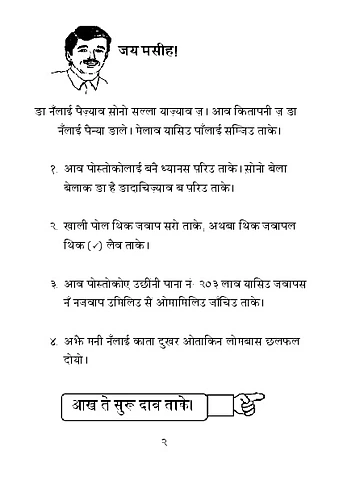 जय मसीह!
ङा नँलाई पैज़्याव स़ोनो सल्ला याज़्याव ज़। आव कितापनी ज़ ङा
नँलाई पैन्या ङाले। मेलाव यासिउ पाँलाई सम्जिउ ताके।
१. आव पोस्तोकोलाई बनै ध्यानस परिउ ताके। स़ोनो बेला
बेलाक ङा है ङादाचिज़्याव ब परिउ ताके।
२. खाली पोल थिक जवाप सरो ताके, अथबा थिक जवापल
थिक (✓) लैव ताके।
३. आव पोस्तोकोए उछींनी पाना नं॰ २०३ लाव यासिउ जवापस
नँ नजवाप उमिलिउ सै ओमामिलिउ जाँचिउ ताके।
४. अझै मनी नँलाई काता दुखर ओताकिन लोमबास छलफल
दोयो।
आख ते सुरू दाव ताके।
२